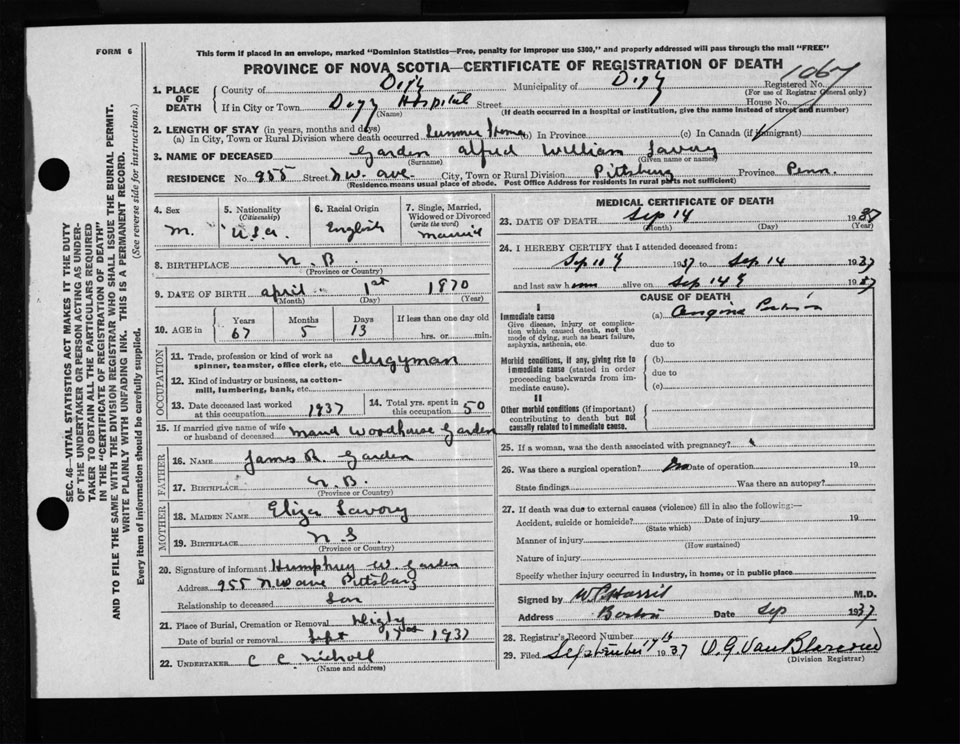 FORM 6
This form if placed in an envelope, marked "Dominion Statistics—Free, penalty for improper use $300," and properly addressed will pass through the mail "FREE"
PROVINCE OF NOVA SCOTIA—CERTIFICATE OF REGISTRATION OF DEATH
1067
1. PLACE OF DEATH
County of Digby Municipality of Digby Registered No.
(For use of Registrar General only)
If in City or Town Digby Hospital Street House No.
(Name) (If death occurred in a hospital or institution, give the name instead of street and number)
2. LENGTH OF STAY (in years, months and days)
(a) In City, Town or Rural Division where death occurred Summer Home (b) In Province (c) In Canada (if immigrant)
3. NAME OF DECEASED Garden Alfred William Savory
(Surname) (Given name or names)
RESIDENCE No. 955 Street N.W. ave. City, Town or Rural Division Pittsburg Province Penn.
(Residence means usual place of abode. Post Office Address for residents in rural parts not sufficient)
SEC. 46—VITAL STATISTICS ACT MAKES IT THE DUTY
OF THE UNDERTAKER OR PERSON ACTING AS UNDER-
TAKER TO OBTAIN ALL THE PARTICULARS REQUIRED
IN THE "CERTIFICATE OF REGISTRATION OF DEATH"
AND TO FILE THE SAME WITH THE DIVISION REGISTRAR WHO SHALL ISSUE THE BURIAL PERMIT.
WRITE PLAINLY WITH UNFADING INK. THIS IS A PERMANENT RECORD.
Every item of information should be carefully supplied. (See reverse side for instructions.)
4. Sex M.
5. Nationality (Citizenship) U.S.A.
6. Racial Origin English
7. Single, Married, Widowed or Divorced (write the word) Married
8. BIRTHPLACE N.B.
(Province or Country)
9. DATE OF BIRTH April 1st 1870
(Month) (Day) (Year)
10. AGE in Years 67 Months 5 Days 13 If less than one day old hrs. or min.
OCCUPATION
11. Trade, profession or kind of work as spinner, teamster, office clerk, etc. clergyman
12. Kind of industry or business, as cotton-mill, lumbering, bank, etc.
13. Date deceased last worked at this occupation 1937
14. Total yrs. spent in this occupation 50
15. If married give name of wife or husband of deceased Maud Woodhouse Garden
FATHER
16. NAME James R. Garden
17. BIRTHPLACE N.B.
(Province or Country)
MOTHER
18. MAIDEN NAME Eliza Savory
19. BIRTHPLACE N.S.
(Province or Country)
20. Signature of informant Humphrey W. Garden
Address 955 N.W. ave Pittsburg
Relationship to deceased Son
21. Place of Burial, Cremation or Removal Digby
Date of burial or removal Sept 17 1937
22. UNDERTAKER C C Nicholl
(Name and address)
MEDICAL CERTIFICATE OF DEATH
23. DATE OF DEATH Sep 14 1937
(Month) (Day) (Year)
24. I HEREBY CERTIFY that I attended deceased from:
Sep 10 1937 to Sep 14 1937
and last saw him alive on Sep 14 1937
CAUSE OF DEATH
I
Immediate cause
Give disease, injury or complication which caused death, not the mode of dying, such as heart failure, asphyxia, asthenia, etc.
(a) Angina Pectoris
due to
Morbid conditions, if any, giving rise to immediate cause (stated in order proceeding backwards from immediate cause).
(b)
due to
(c)
II
Other morbid conditions (if important) contributing to death but not causally related to immediate cause.
25. If a woman, was the death associated with pregnancy?
26. Was there a surgical operation? no Date of operation 19
State findings Was there an autopsy?
27. If death was due to external causes (violence) fill in also the following:—
Accident, suicide or homicide? Date of injury 19
(State which)
Manner of injury
(How sustained)
Nature of injury
Specify whether injury occurred in industry, in home, or in public place
Signed by M.D.
Address Date Sep 1937
28. Registrar's Record Number
29. Filed September 1937
(Division Registrar)